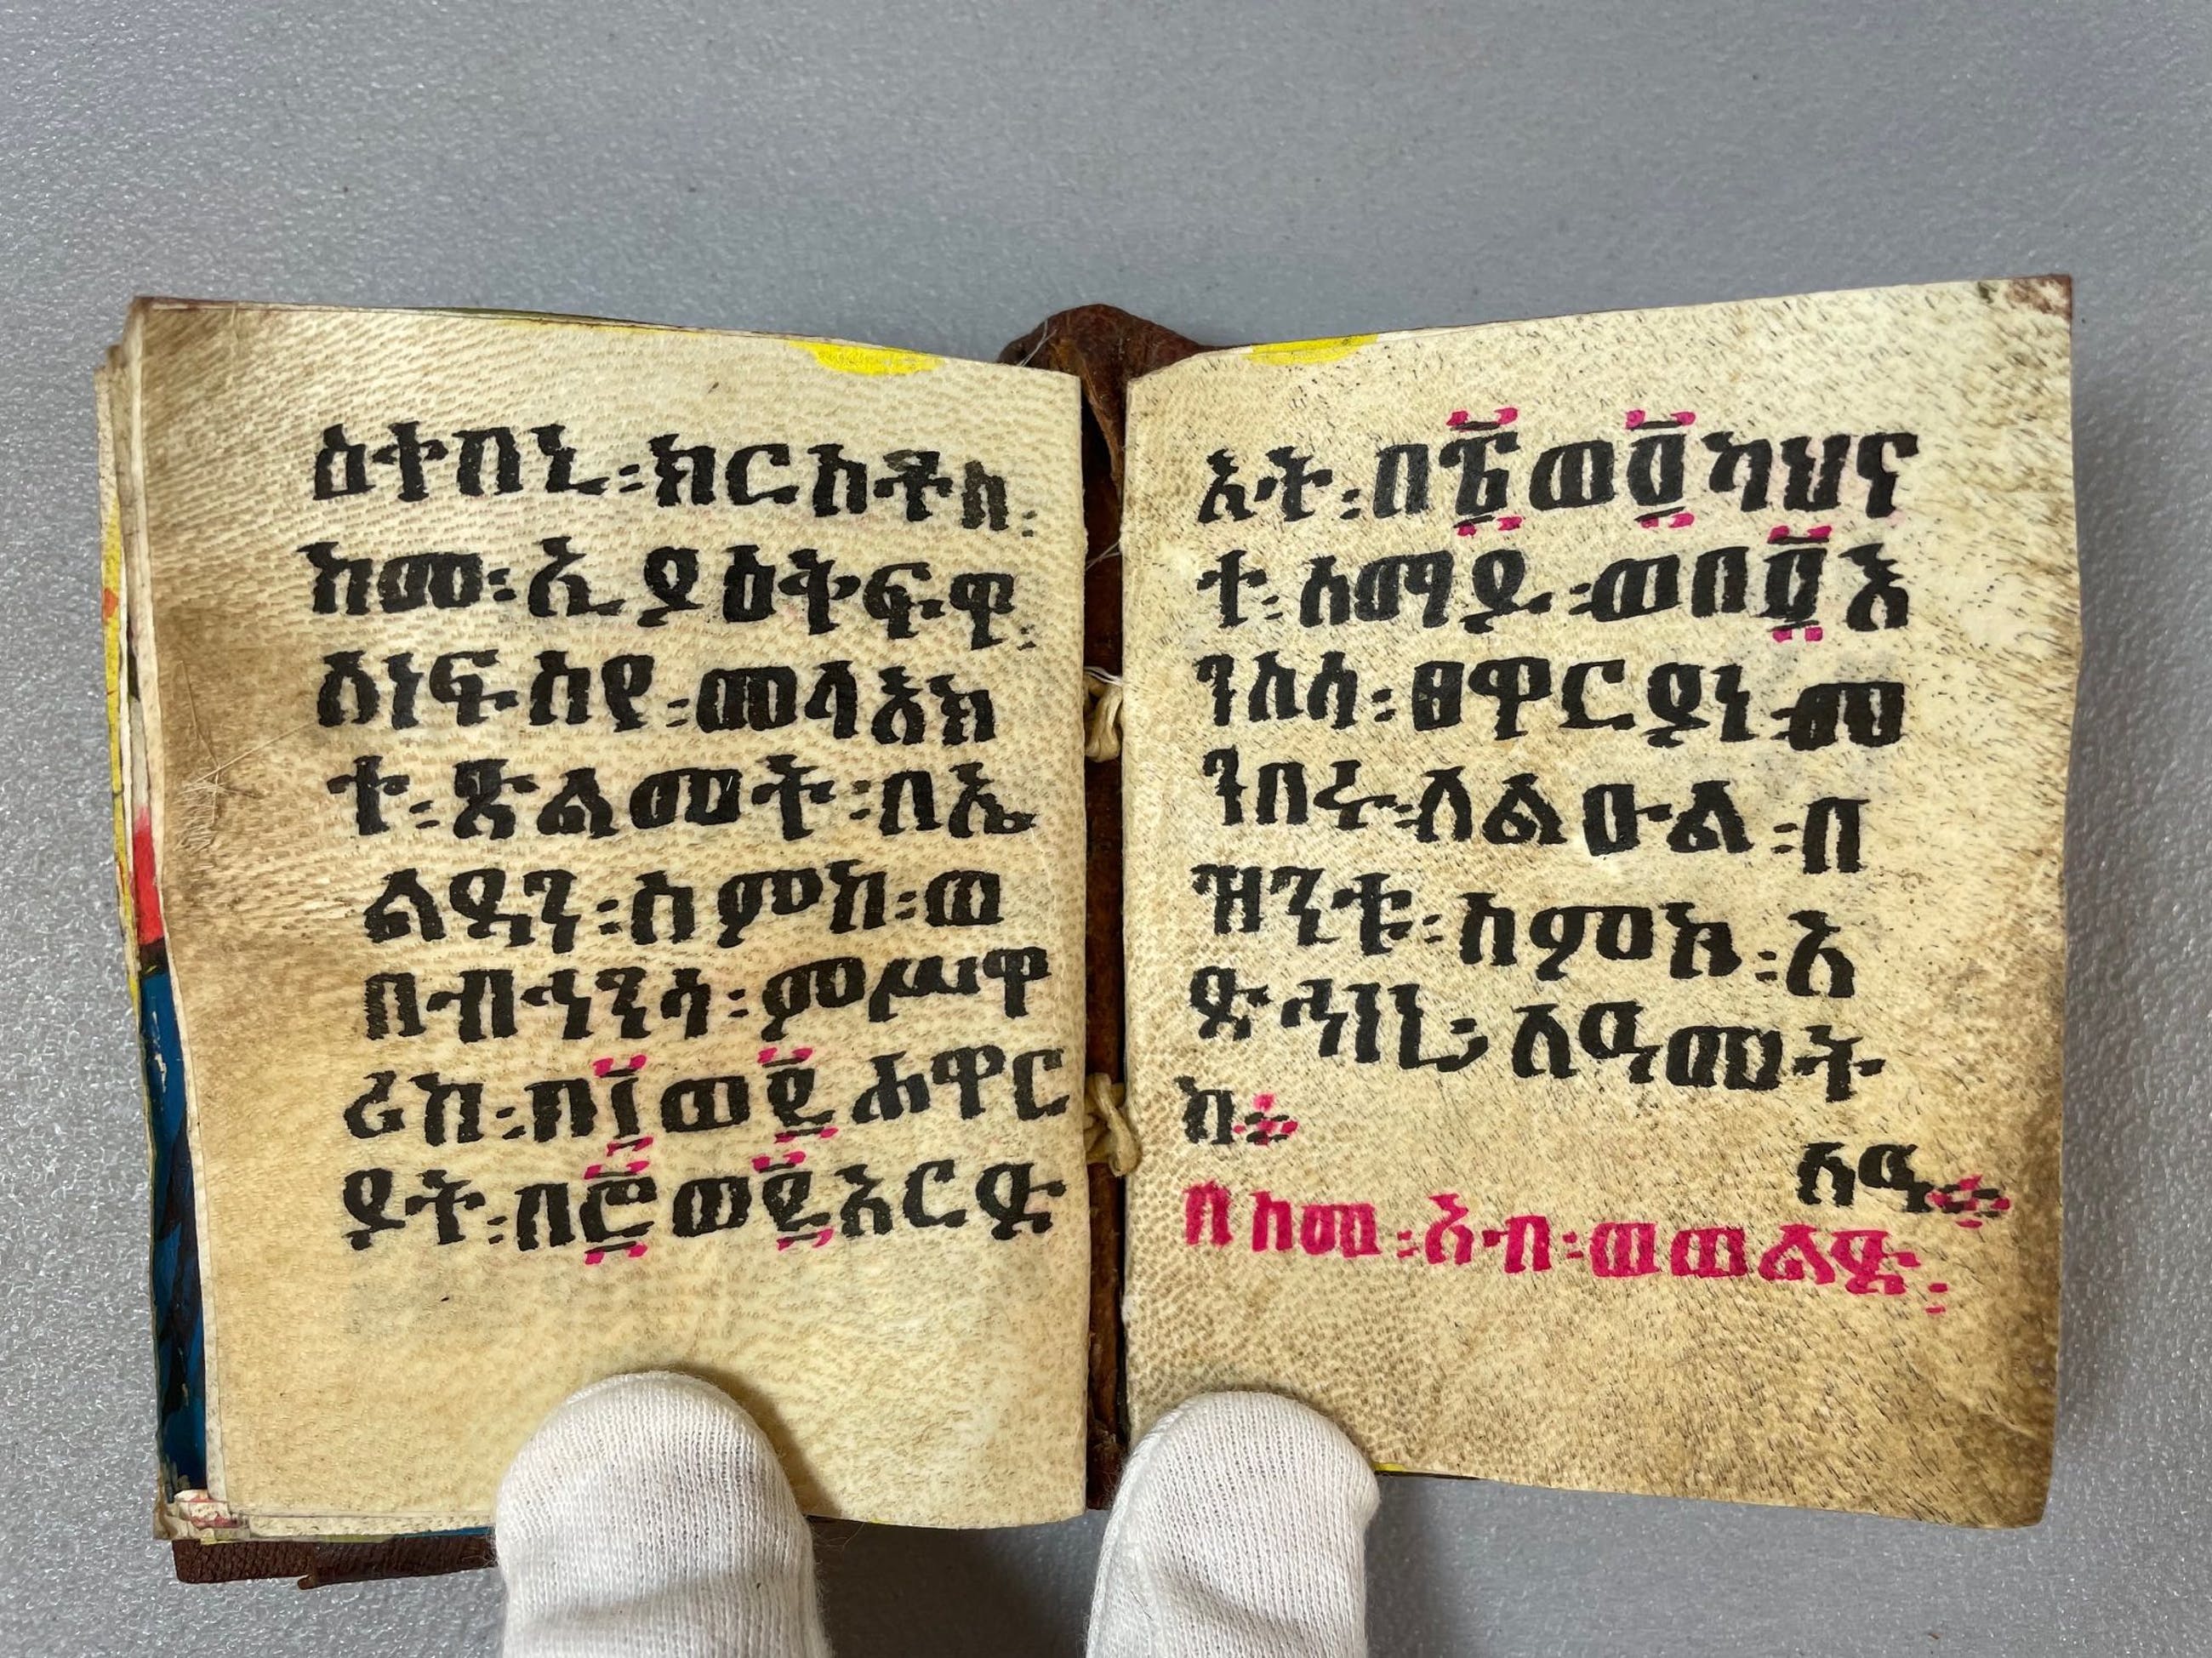 ዕተበኒ፡ክርስቶስ፡
ከመ፡ኢያዕትፍዋ፡
ለነፍስየ፡መላእክ
ተ፡ጽልመት፡በኤ
ልዳን፡ስምከ፡ወ
በብኅንሳ፡ምሥዋ
ሪከ፡በ፲ወ፪ሐዋር
ያት፡በ፸ወ፪አርድ
እት፡በ፳ወ፬ካህና
ተ፡ሰማይ፡ወበ፬እ
ንስሳ፡ፀዋርያነ፡መ
ንበሩ፡ለልዑል፡በ
ዝንቱ፡ስምከ፡አ
ድኅነኒ፡ለዓመት
ከ።
ለዓ።
በከመ፡አብ፡ወወልድ፡